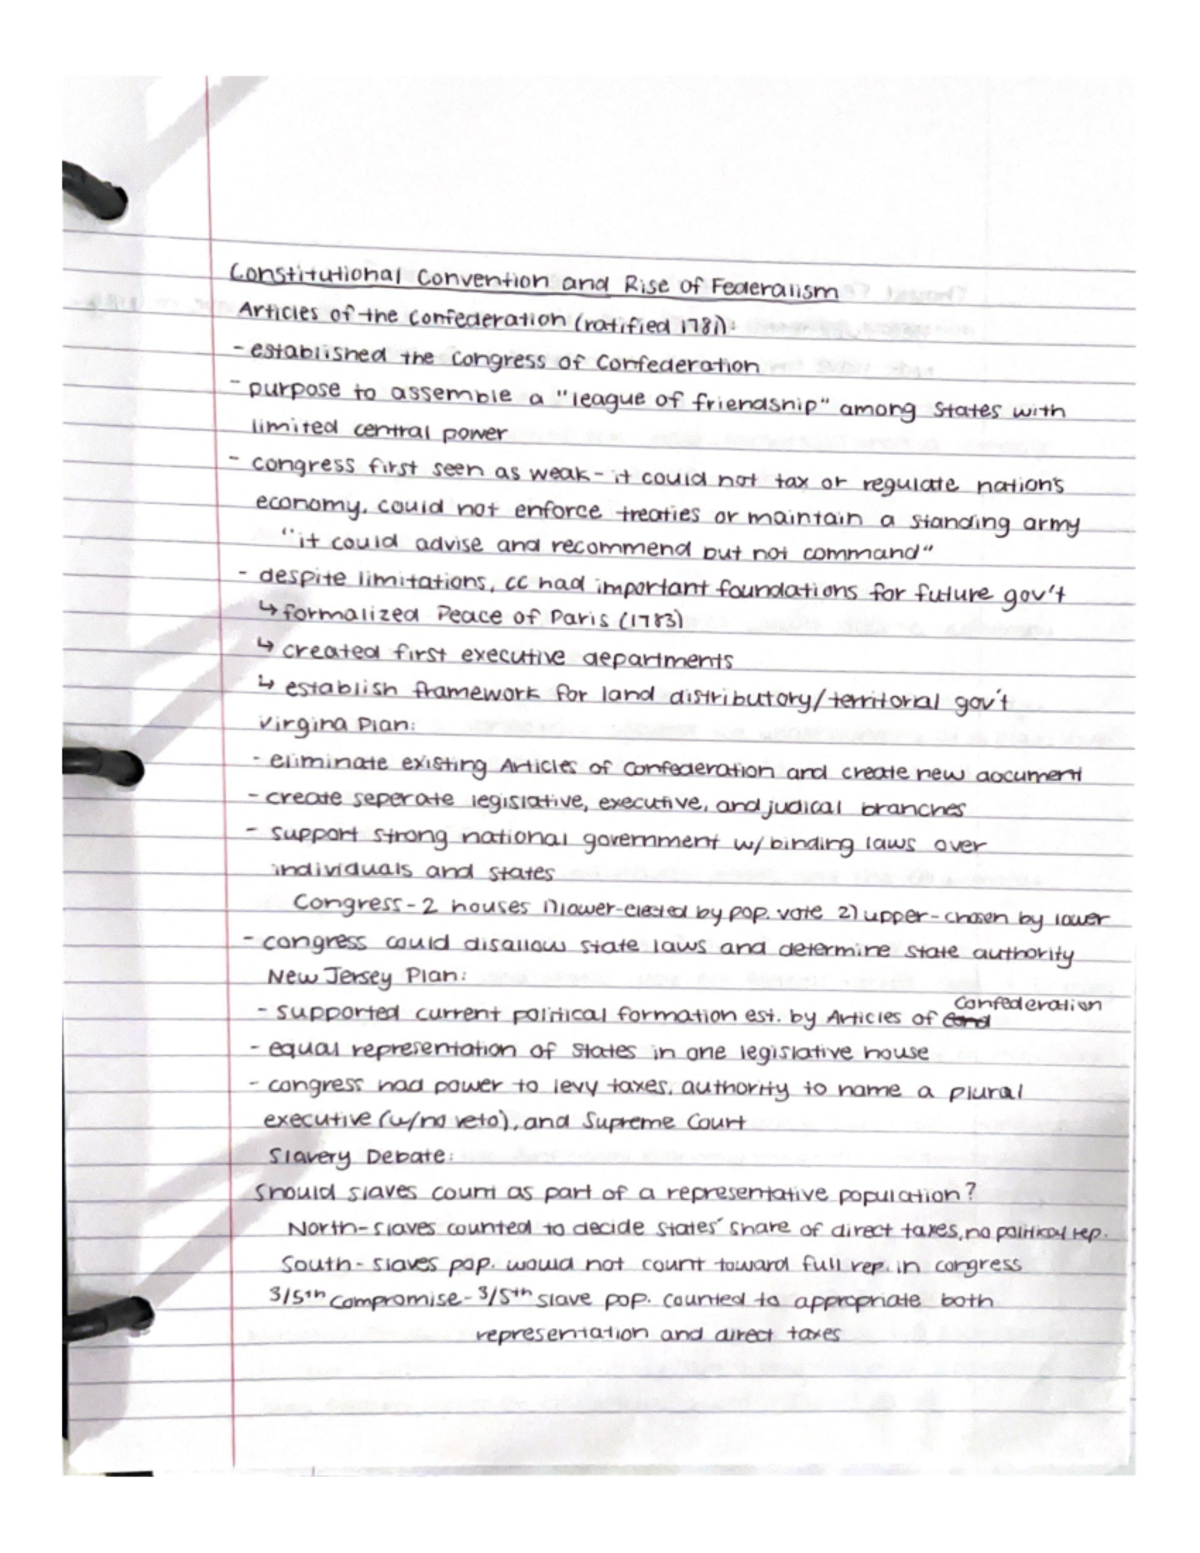 Constitutional Convention and Rise of Federalism
Articles of the Confederation (ratified 1781):
- established the Congress of Confederation
- purpose to assemble a "league of friendship" among states with
limited central power
- congress first seen as weak - it could not tax or regulate nation's
economy, could not enforce treaties or maintain a standing army
"it could advise and recommend but not command"
- despite limitations, CC had important foundations for future gov't
↳ formalized Peace of Paris (1783)
↳ created first executive departments
↳ establish framework for land distributory/territorial gov't
Virgina Plan:
- eliminate existing Articles of Confederation and create new document
- create seperate legislative, executive, and judical branches
- support strong national government w/ binding laws over
individuals and states
Congress - 2 houses 1) lower-elected by pop. vote 2) upper-chosen by lower
- congress could disallow state laws and determine state authority
New Jersey Plan:
- supported current political formation est. by Articles of Confederation
- equal representation of states in one legislative house
- congress had power to levy taxes, authority to name a plural
executive (w/no veto), and Supreme Court
Slavery Debate:
Should slaves count as part of a representative population?
North - slaves counted to decide states' share of direct taxes, no political rep.
South - slaves pop. would not count toward full rep. in congress
3/5th compromise - 3/5th slave pop. counted to appropriate both
representation and direct taxes